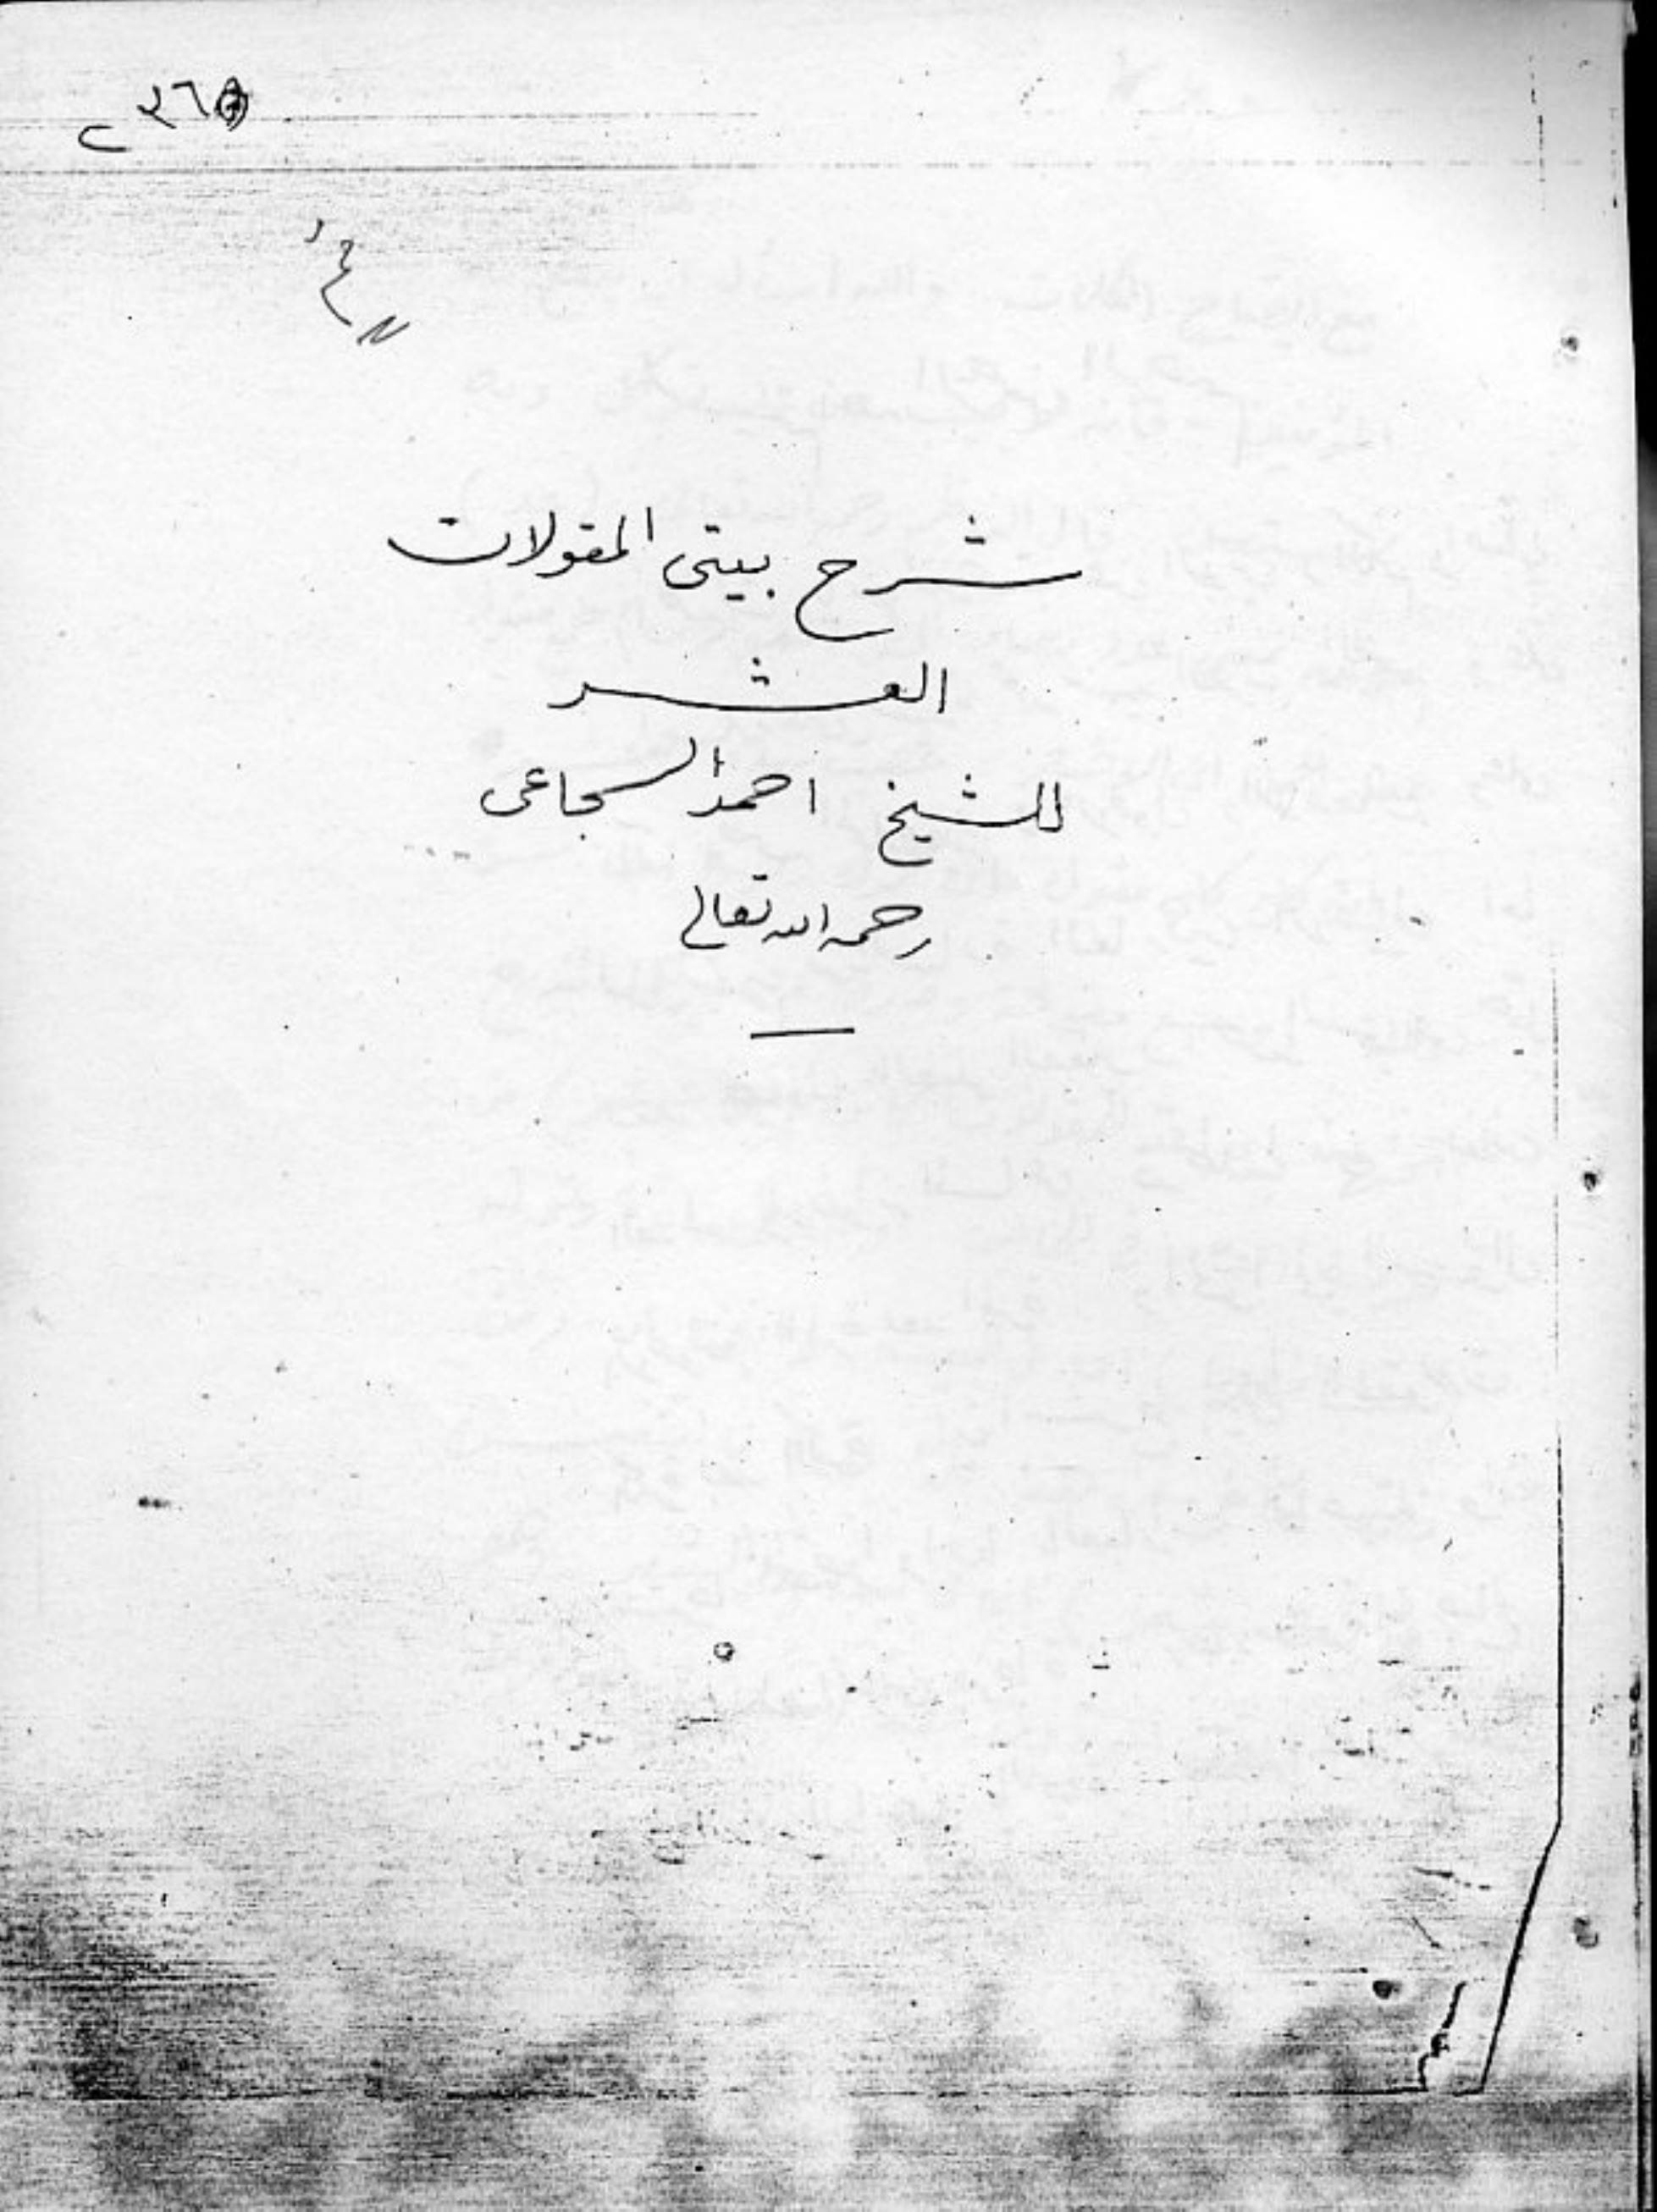 شرح بيتى المقولات
العشر
للشيخ احمد السجاعى
رحمه الله تعالى